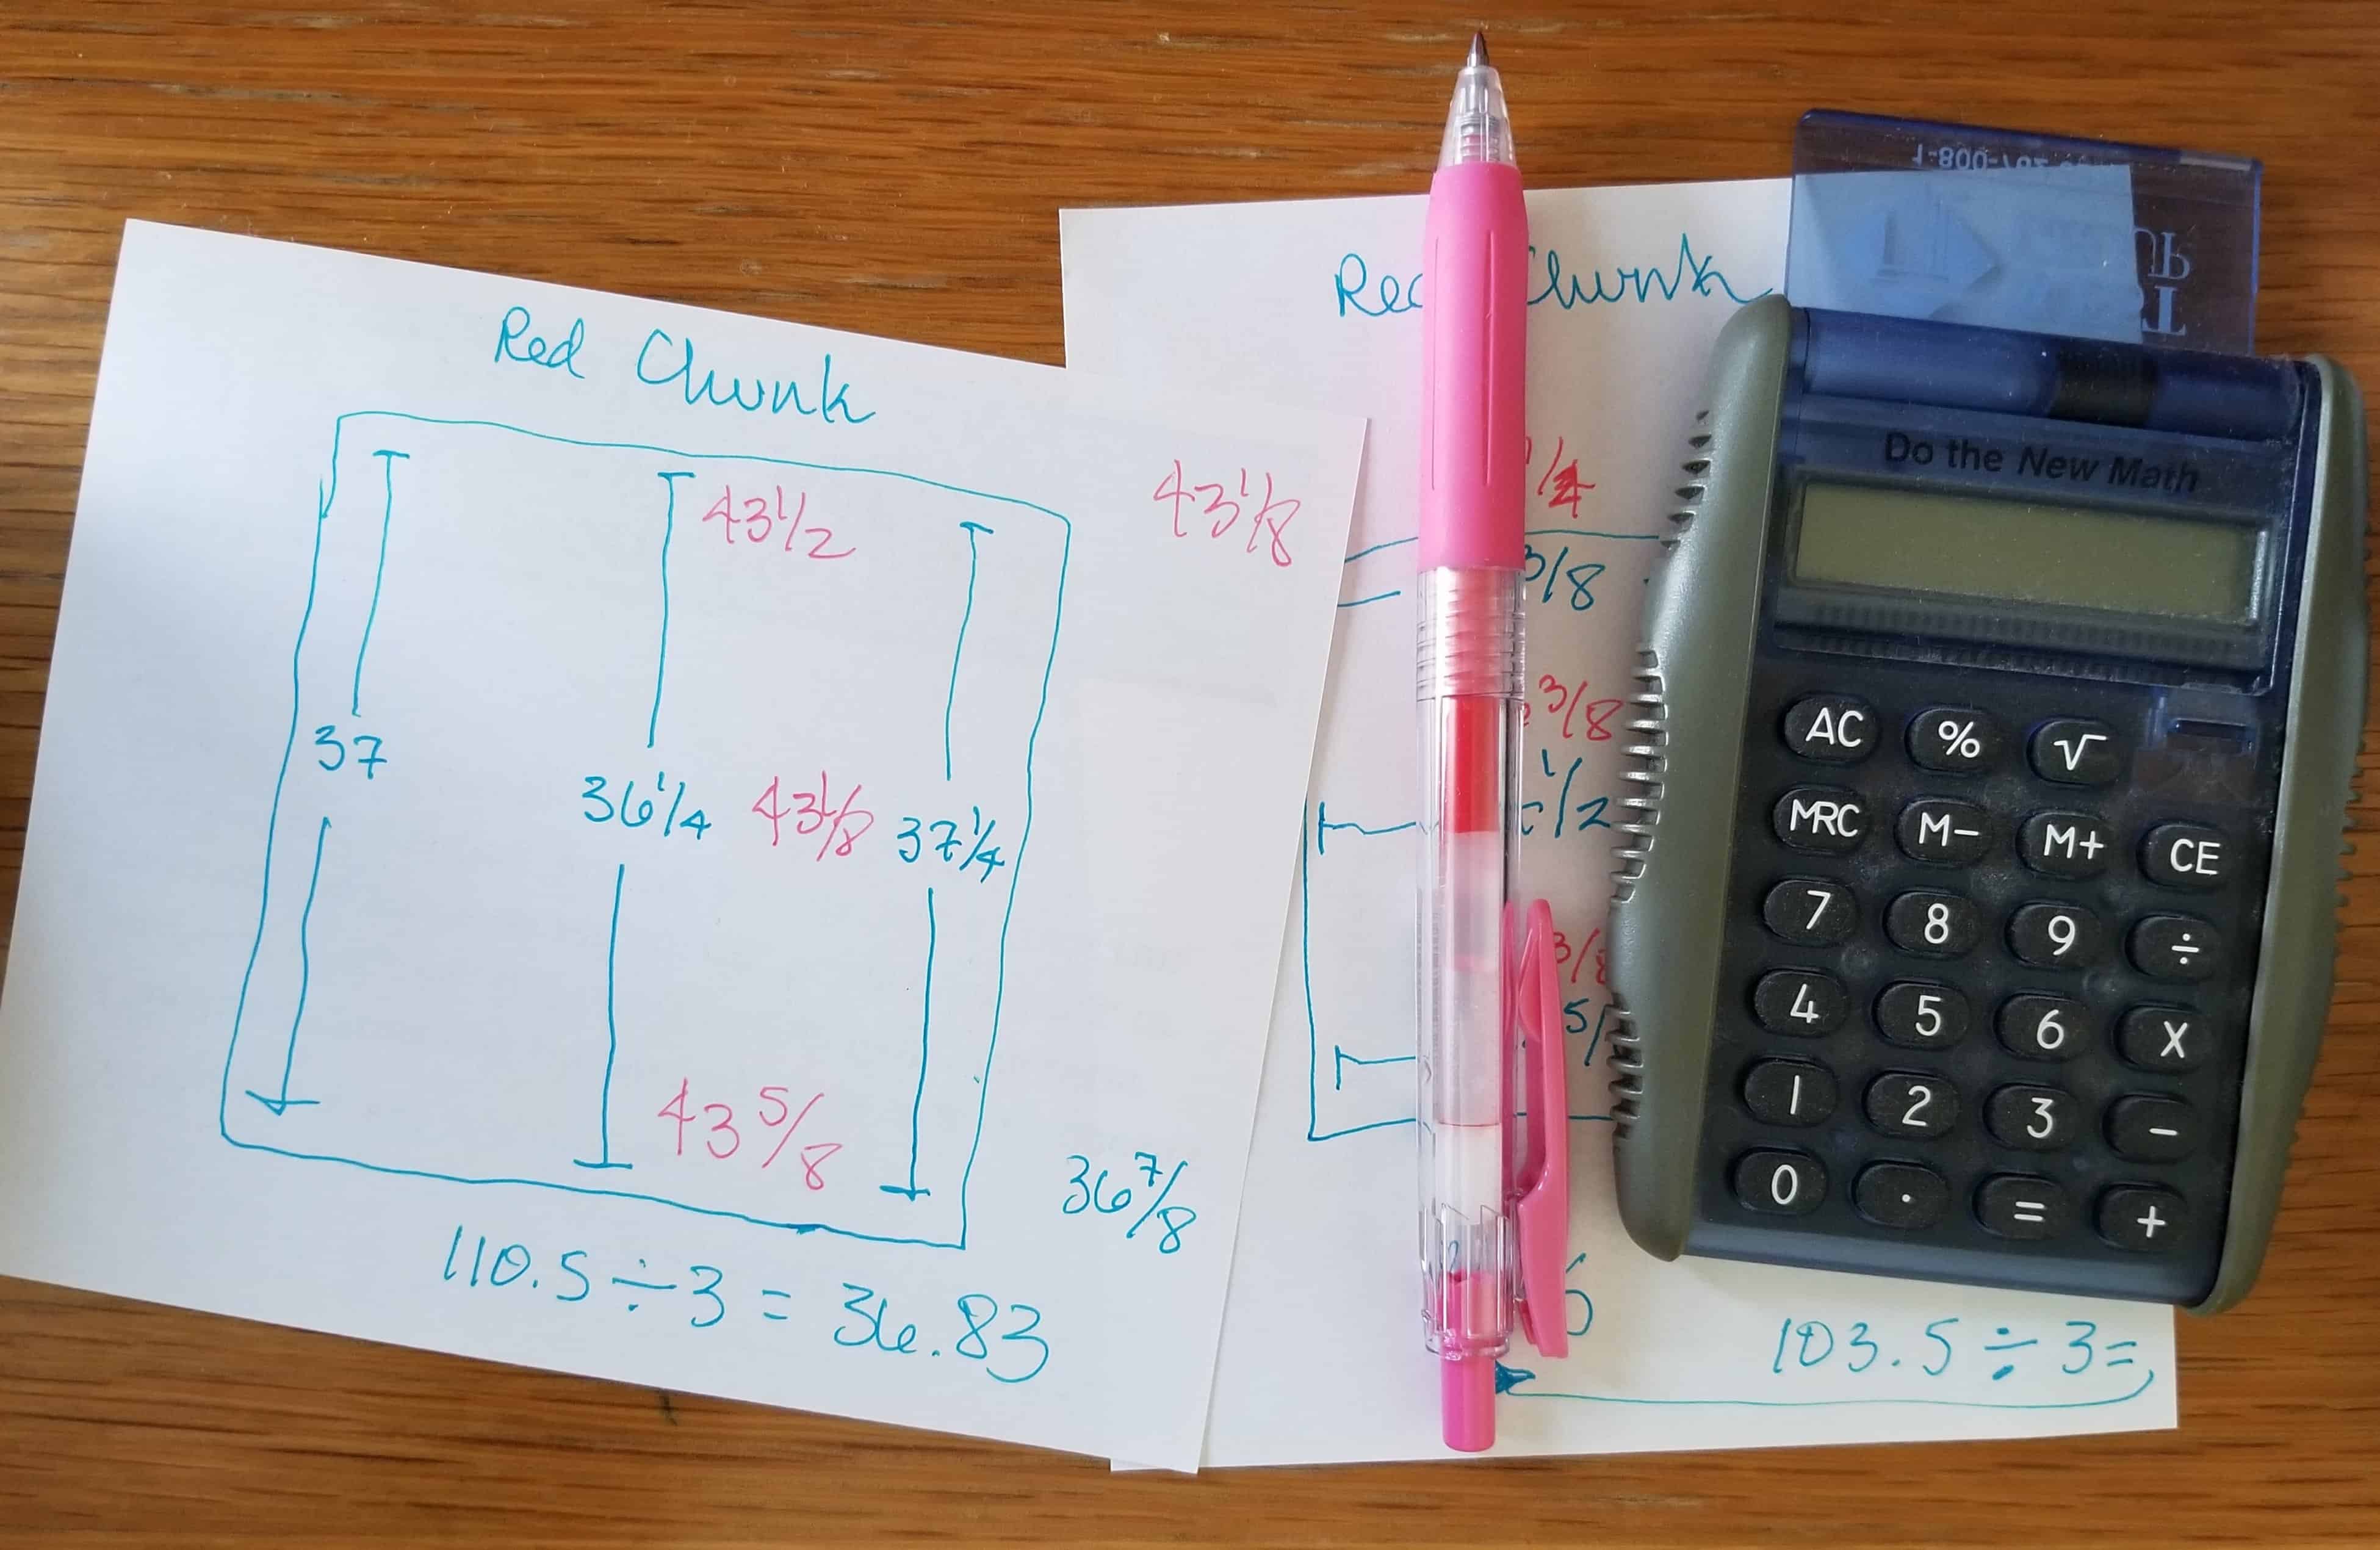 Red Chunk
43 1/2
43 1/8
37
36 1/4
43 1/8
37 1/4
43 5/8
36 7/8
110.5 ÷ 3 = 36.83
Chunk
1/4
3/8
3/8
1/2
3/8
5/
6
103.5 ÷ 3=
1-800-
Do the New Math
AC % √
MRC M− M+ CE
7 8 9 ÷
4 5 6 X
1 2 3 −
0 . = +